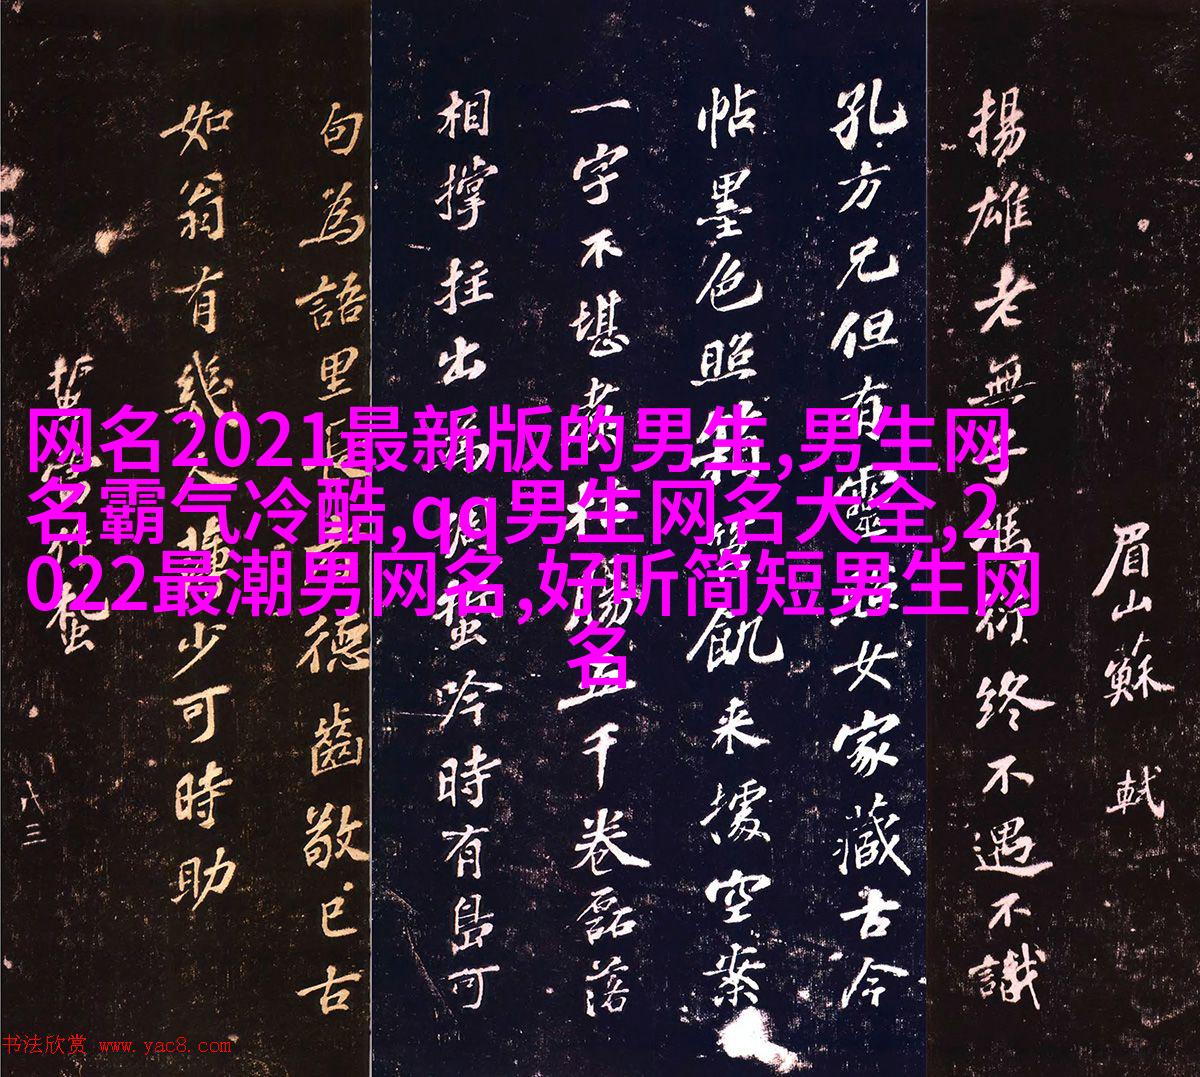 网名2021最新版的男生,男生网
名霸气冷酷,qq男生网名大全,2
022最潮男网名,好听简短男生网
名
眉山蘇軾
揚雄老無子馮衍終不遇不識
孔方兄但有靈照女家藏古今
帖墨色照箱筥飢来據空案
一字不堪煮枯腸五千卷磊落
相撑拄出為蜩蛩吟時有島可
句為語里長吾德齒敬已古
如翁有幾人薄少可時助
八三
书法欣赏 www.yac8.com